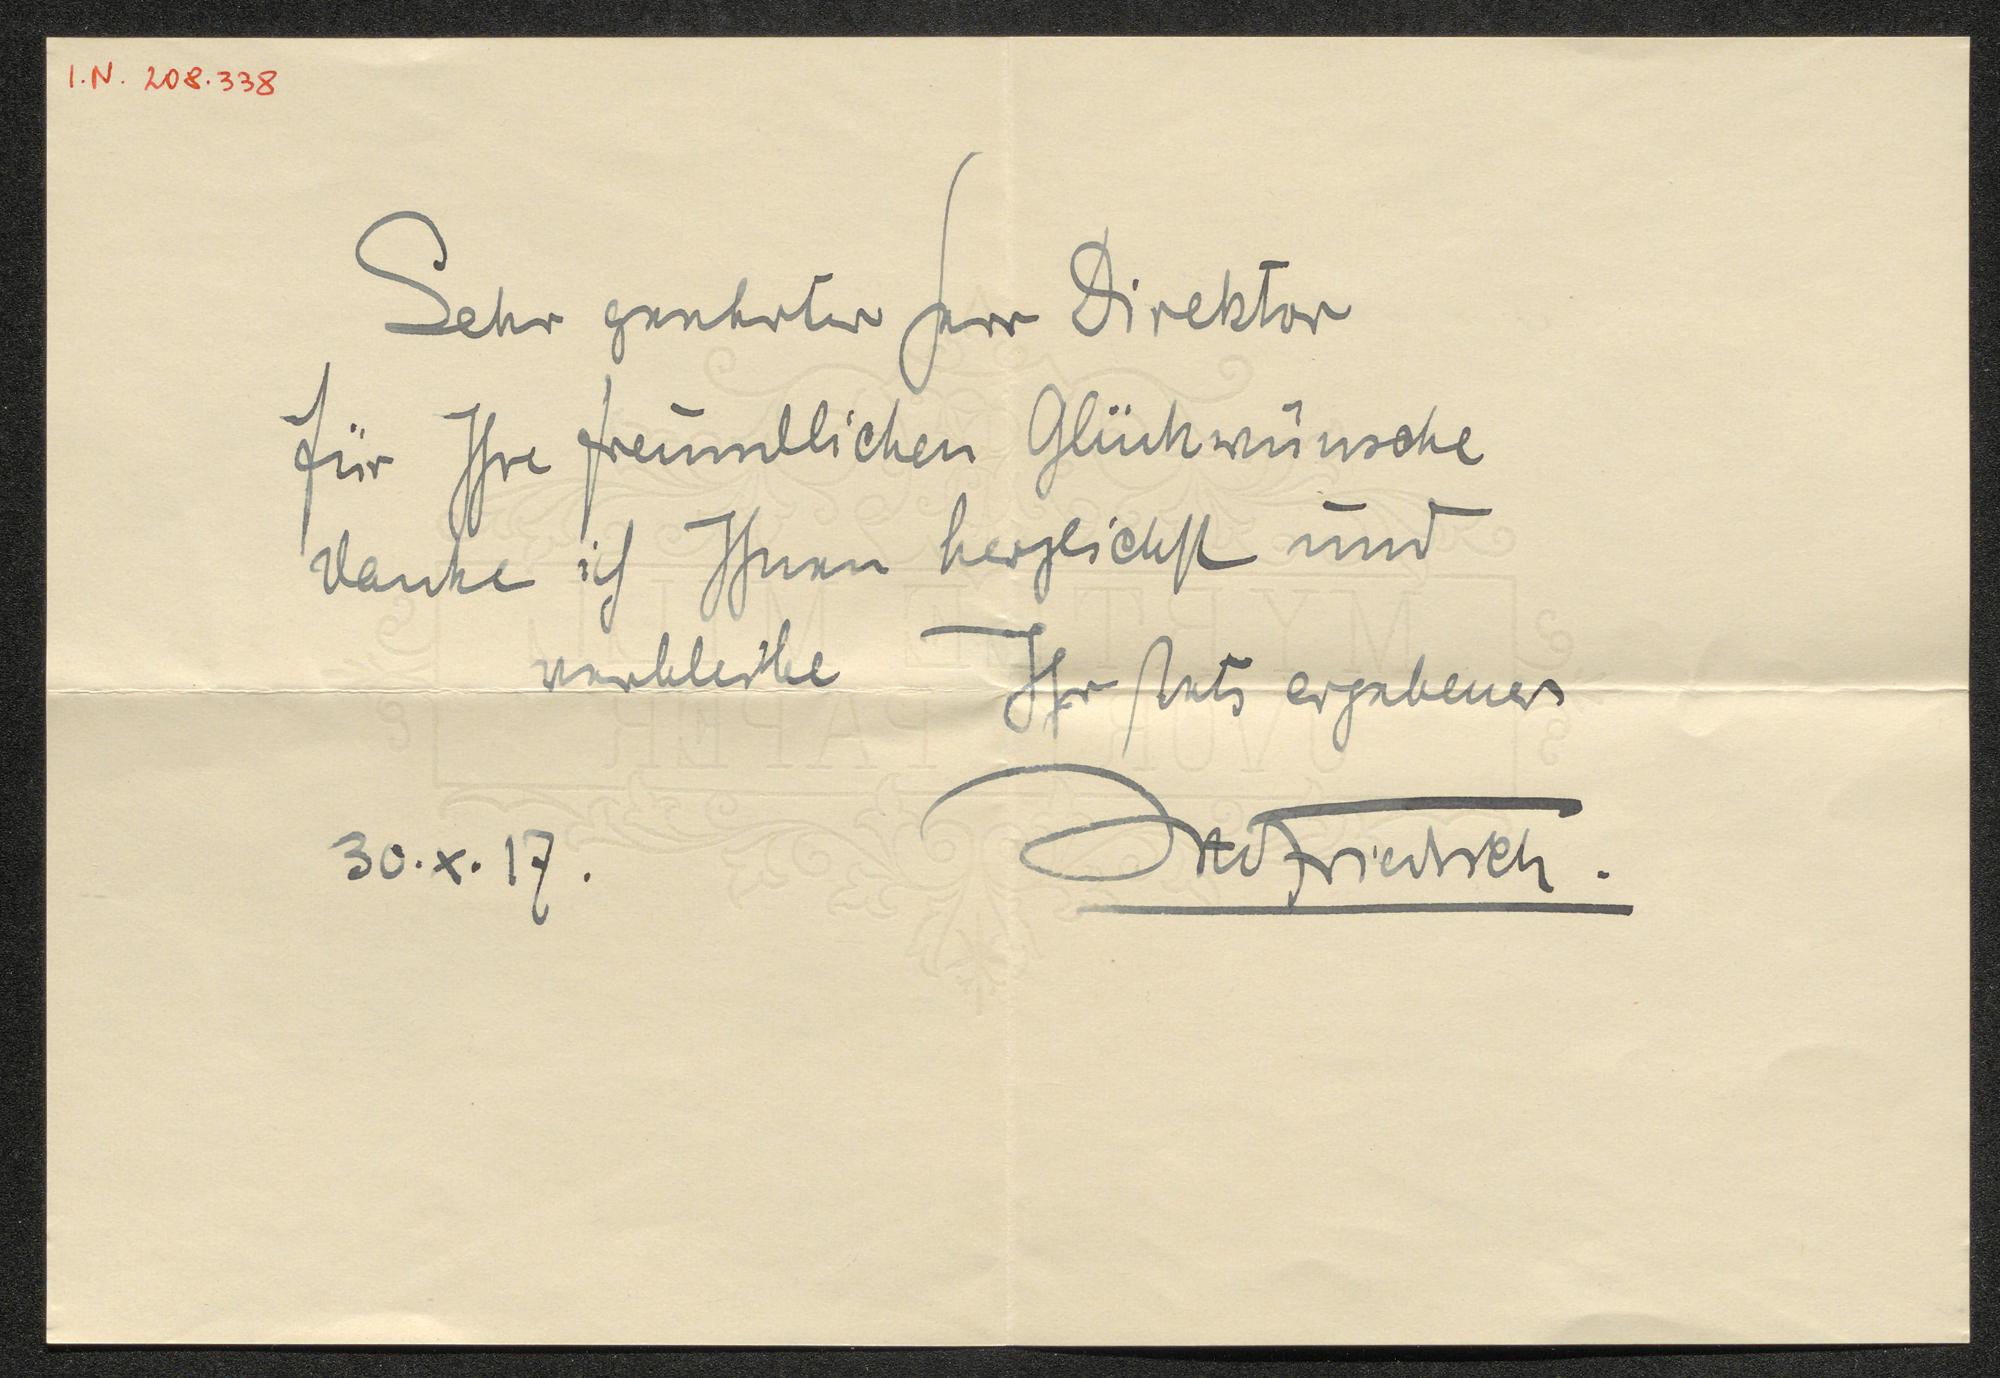 I.N. 208.338
Sehr geehrter Herr Direktor
für Ihre freundlichen Glückwünsche
danke ich Ihnen herzlichst und
verbleibe Ihr stets ergebener
30. X. 17.
Otto Friedrich.
MYRTLE MILL
PAPER